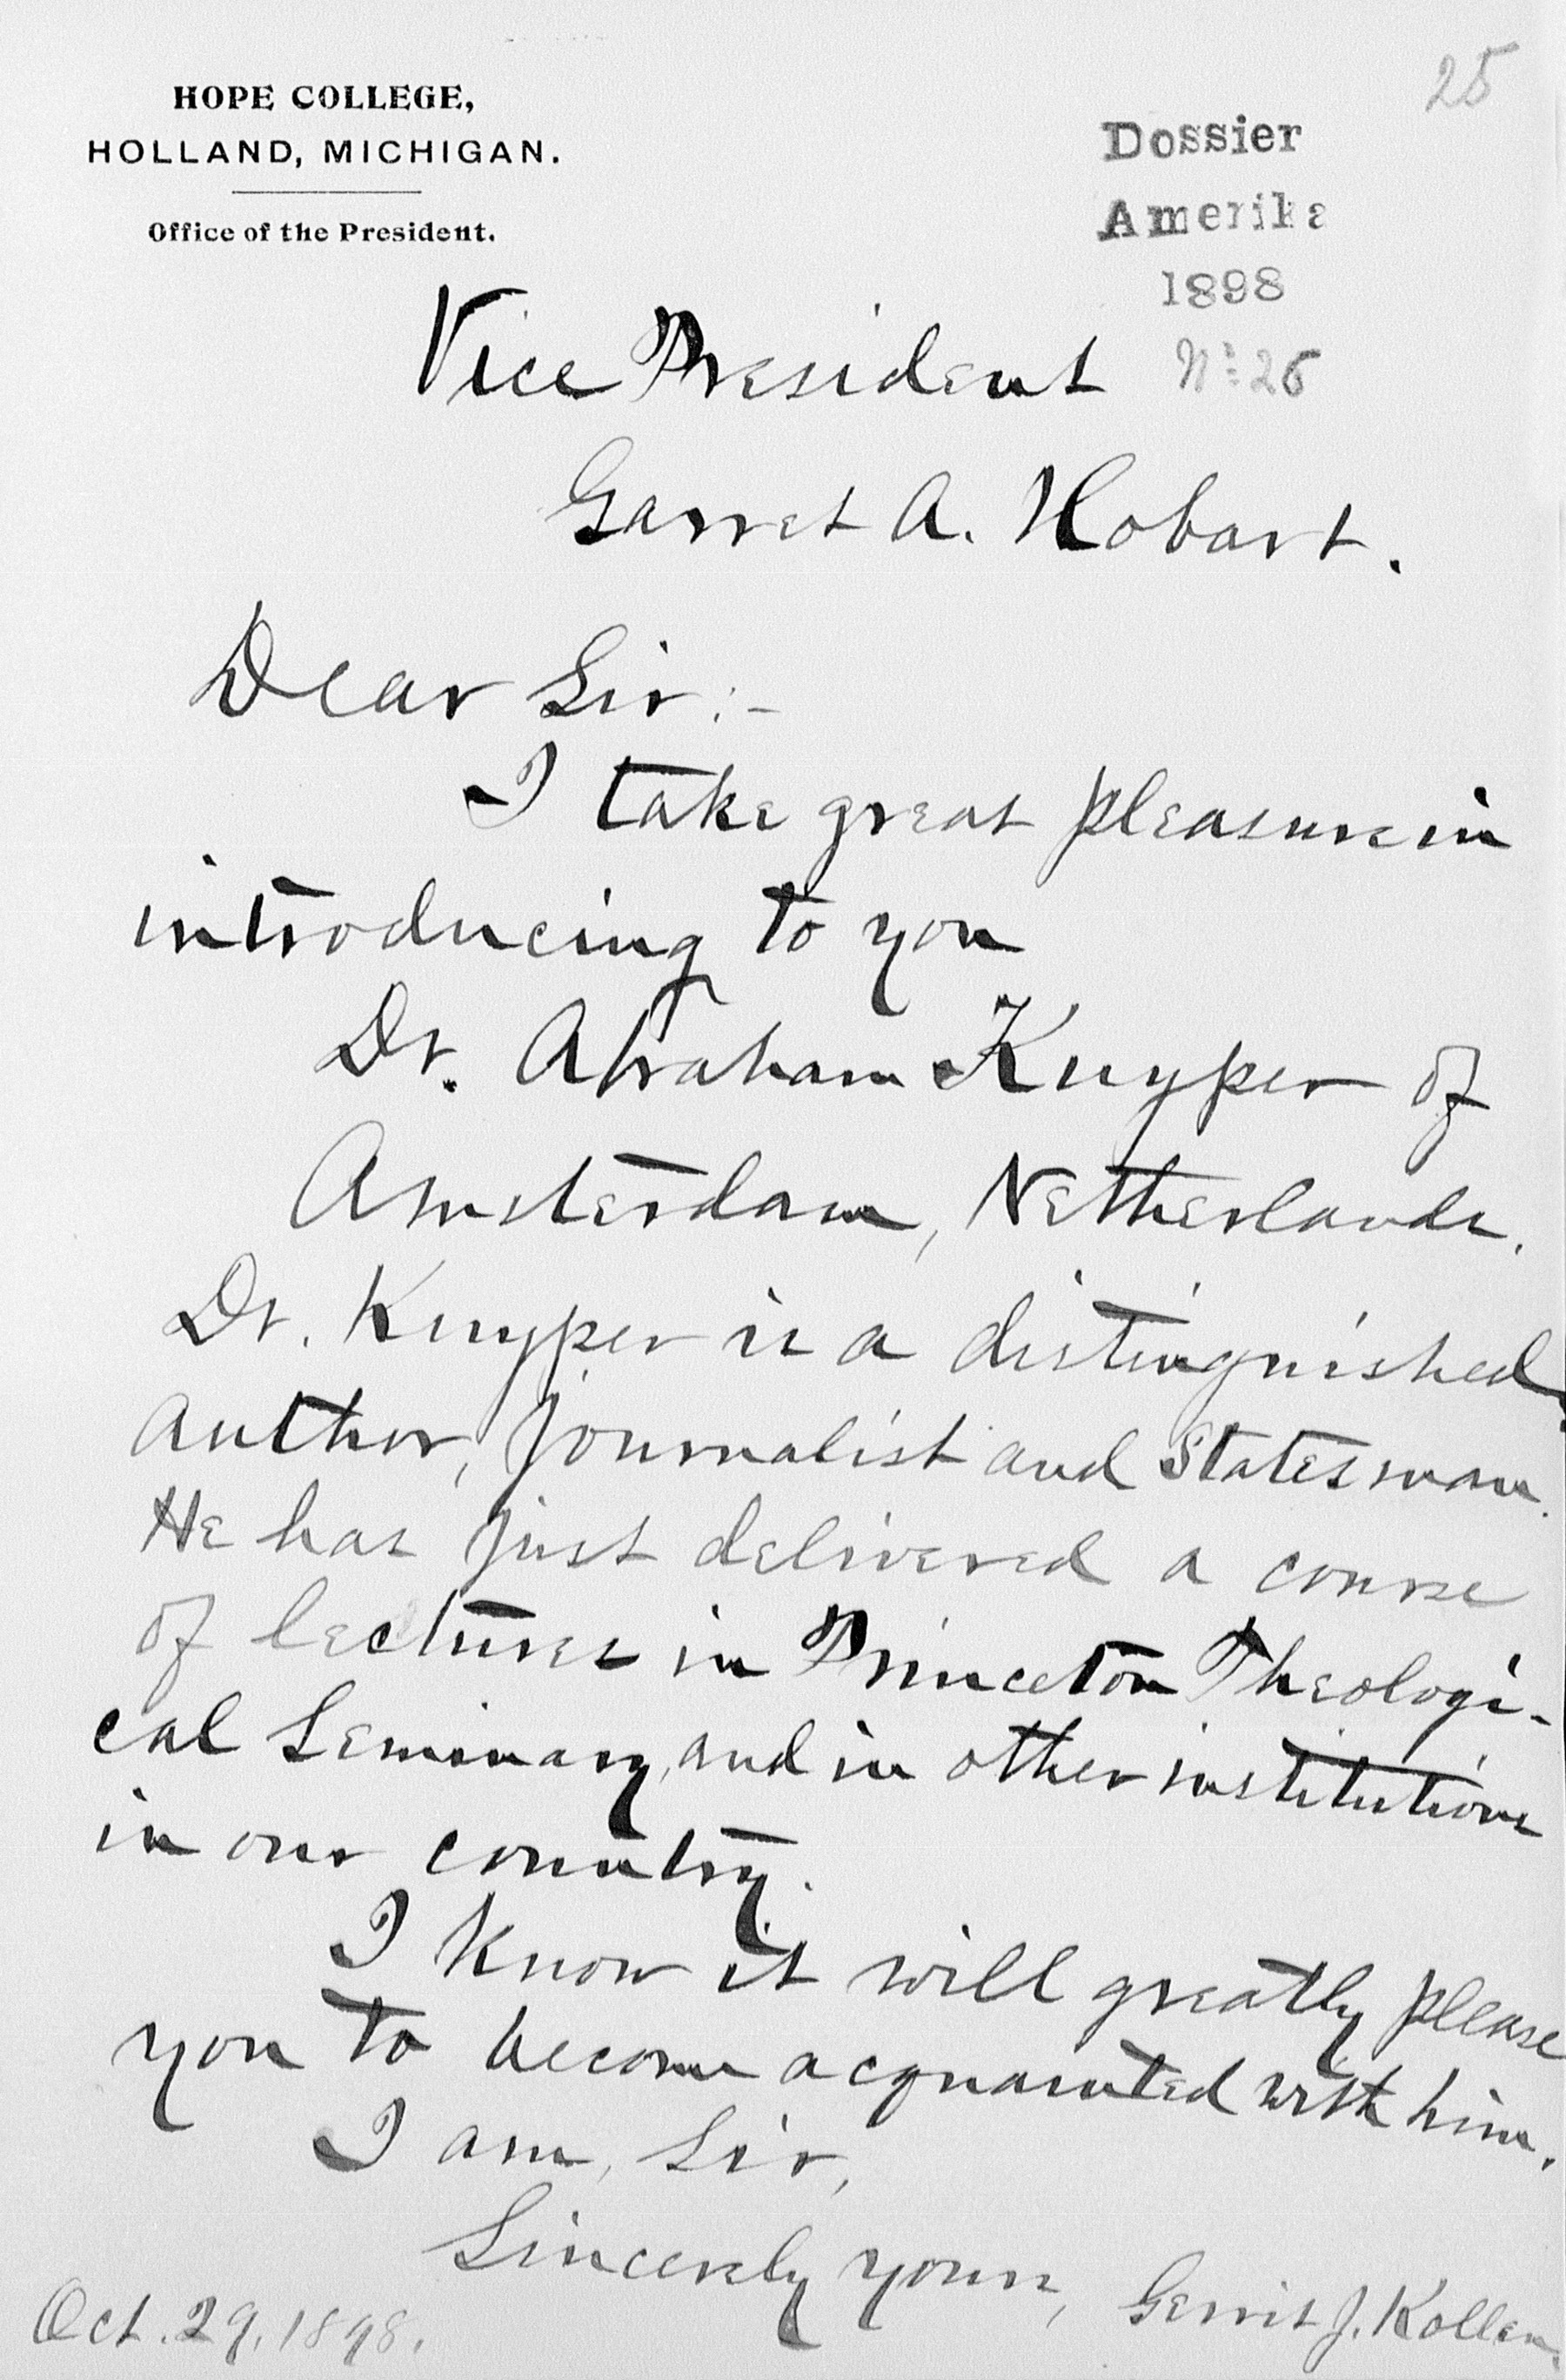 25
HOPE COLLEGE,
HOLLAND, MICHIGAN.
Office of the President.
Dossier
Amerika
1898
Nº: 26
Vice President
Garret A. Hobart.
Dear Sir:-
I take great pleasure in
introducing to you
Dr. Abraham Kuyper of
Amsterdam, Netherlands.
Dr. Kuyper is a distinguished
author, journalist and Statesman.
He has just delivered a course
of lectures in Princeton Theologi-
cal Seminary, and in other institutions
in our country.
I know it will greatly please
you to become acquainted with him.
I am, Sir,
Sincerely yours,
Gerrit J. Kollen.
Oct. 29, 1898.